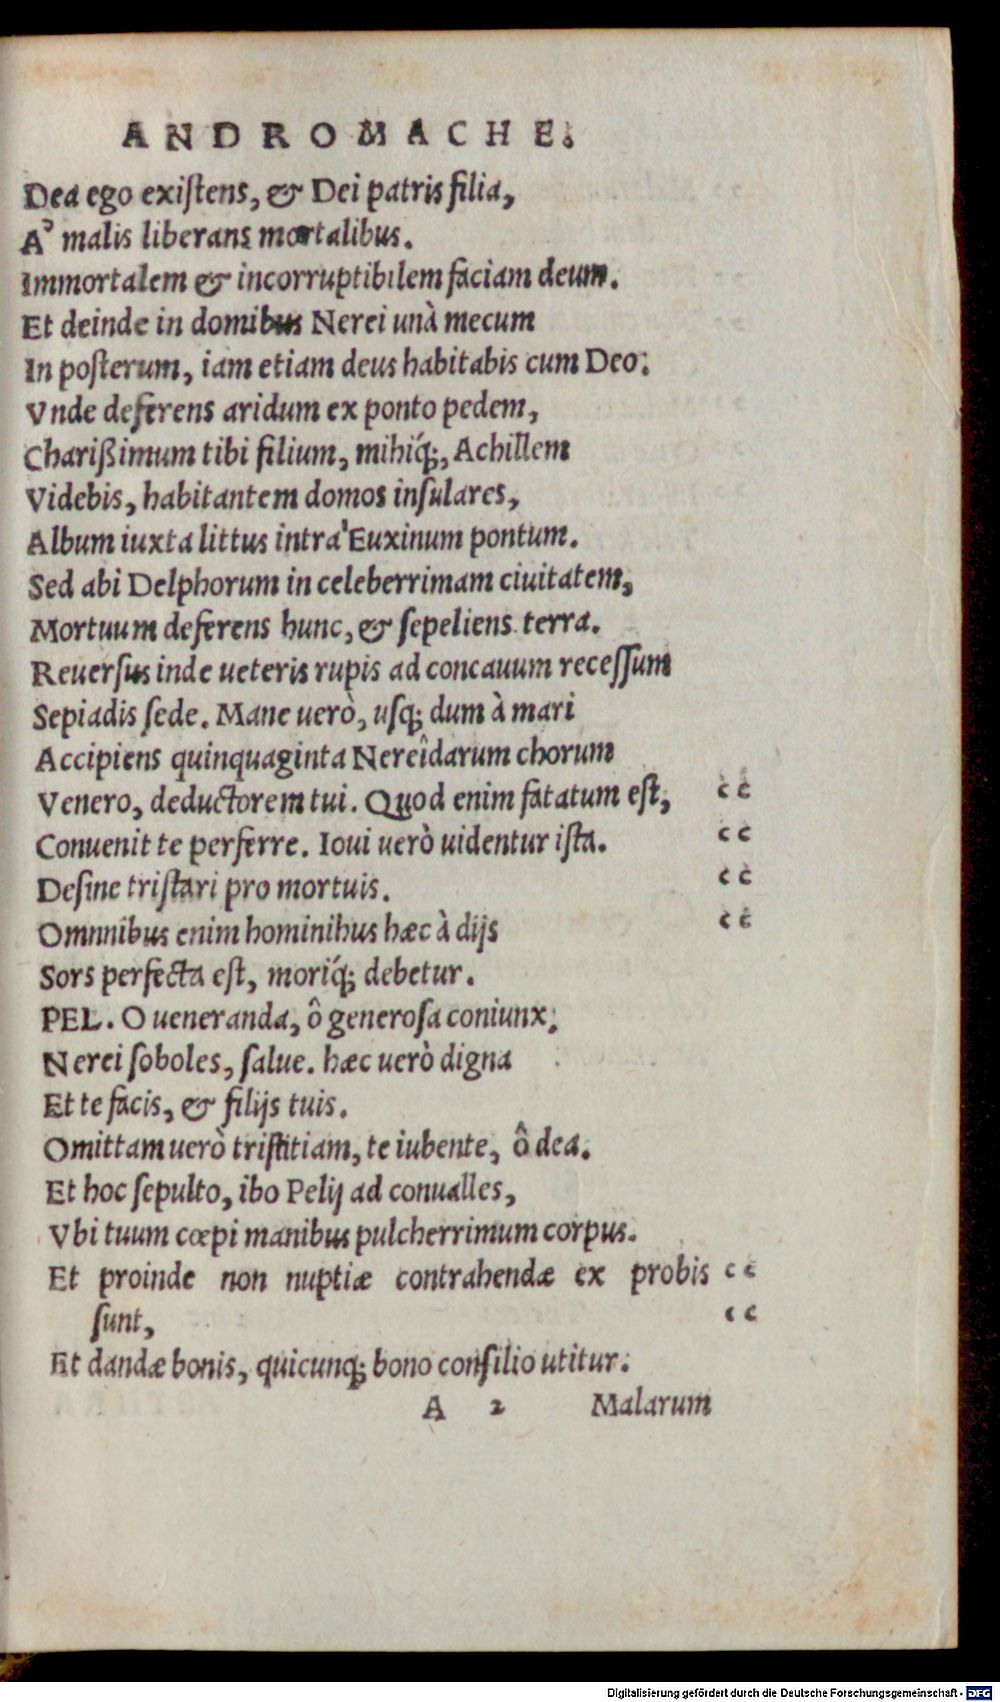 ANDROMACHE.
Dea ego existens, & Dei patris filia,
A' malis liberans mortalibus.
Immortalem & incorruptibilem faciam deum.
Et deinde in domibus Nerei unà mecum
In posterum, iam etiam deus habitabis cum Deo:
Vnde deferens aridum ex ponto pedem,
Charißimum tibi filium, mihiq́;, Achillem
Videbis, habitantem domos insulares,
Album iuxta littus intra' Euxinum pontum.
Sed abi Delphorum in celeberrimam ciuitatem,
Mortuum deferens hunc, & sepeliens terra.
Reuersus inde ueteris rupis ad concauum recessum
Sepiadis sede. Mane uerò, usq; dum à mari
Accipiens quinquaginta Nereîdarum chorum
Venero, deductorem tui. Quod enim fatatum est, cc
Conuenit te perferre. Ioui uerò uidentur ista. cc
Desine tristari pro mortuis. cc
Omnnibus enim hominibus hæc à dijs cc
Sors perfecta est, moriq́; debetur.
PEL. O ueneranda, ô generosa coniunx,
Nerei soboles, salue. hæc uerò digna
Et te facis, & filijs tuis.
Omittam uerò tristitiam, te iubente, ô dea.
Et hoc sepulto, ibo Pelij ad conualles,
Vbi tuum cœpi manibus pulcherrimum corpus.
Et proinde non nuptiæ contrahendæ ex probis cc
sunt, cc
Et dandæ bonis, quicunq; bono consilio utitur.
A 2 Malarum
Digitalisierung gefördert durch die Deutsche Forschungsgemeinschaft - DFG